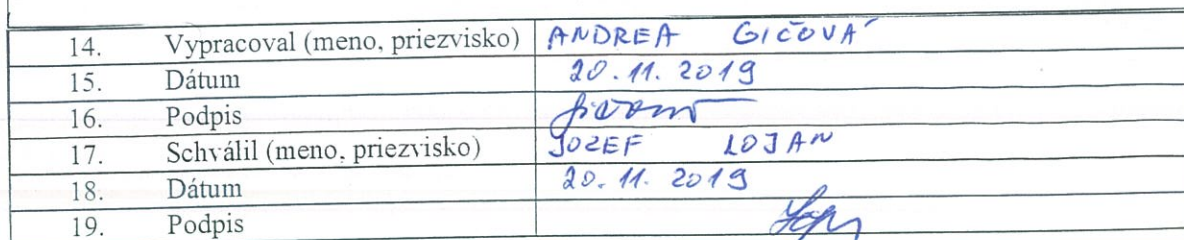 14. Vypracoval (meno, priezvisko) ANDREA GIČOVÁ
15. Dátum 20.11.2019
16. Podpis
17. Schválil (meno, priezvisko) JOZEF LOJAN
18. Dátum 20.11.2019
19. Podpis